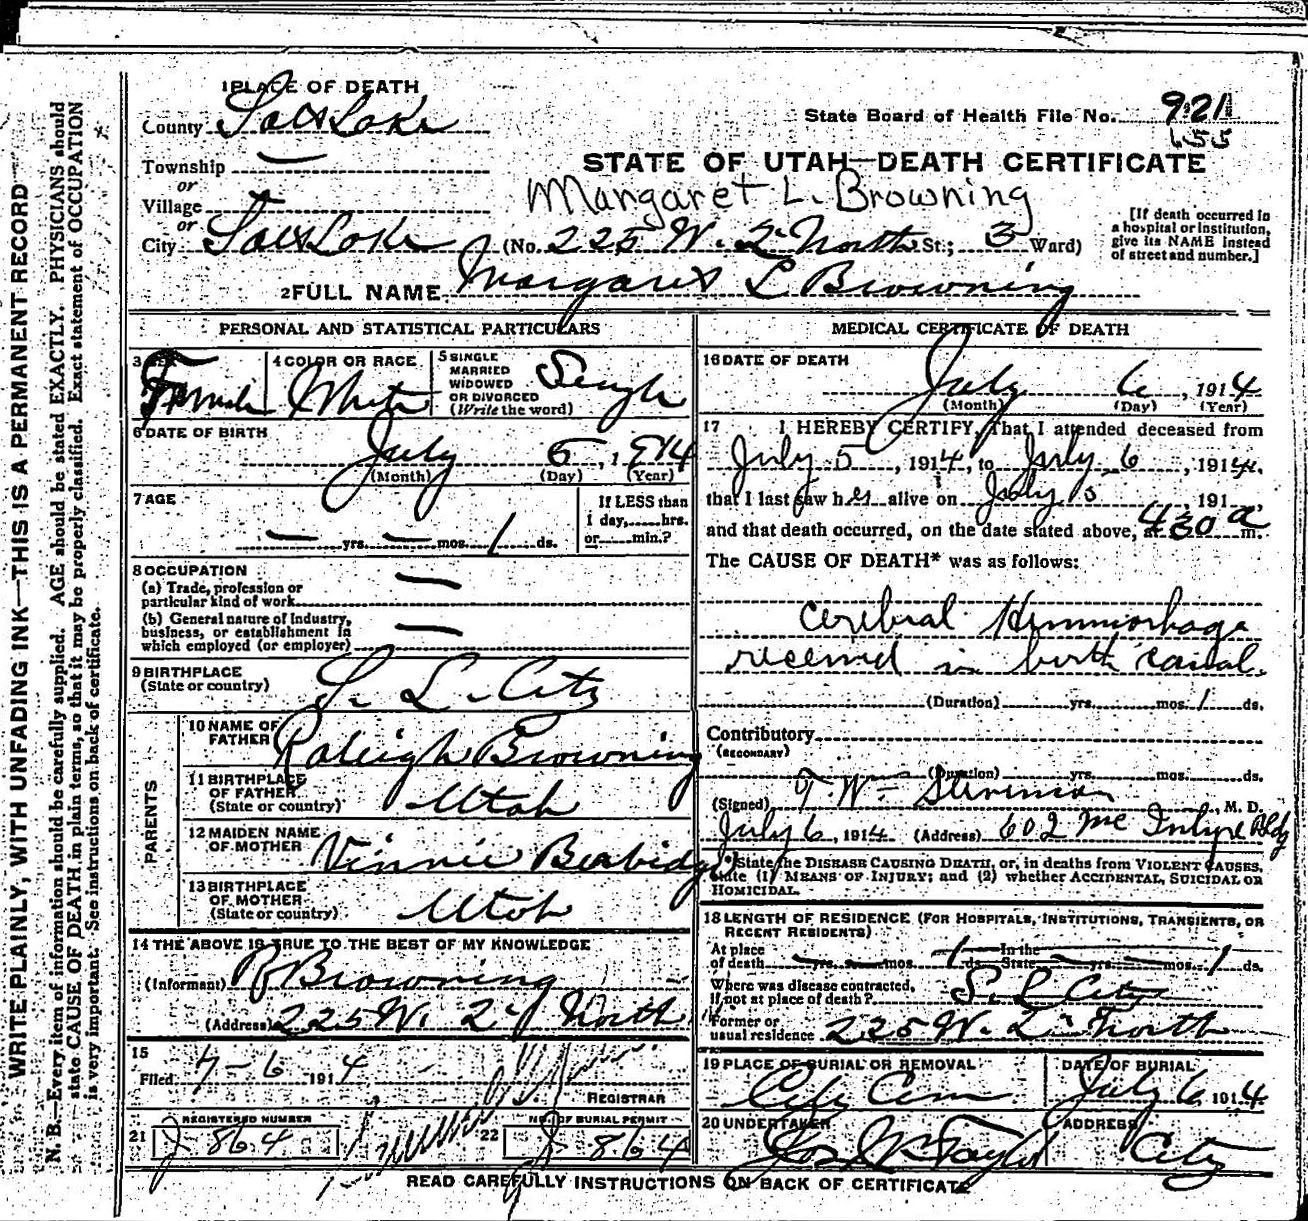 1 PLACE OF DEATH
County Salt Lake
State Board of Health File No. 921
655
Township —
STATE OF UTAH—DEATH CERTIFICATE
or
Village
Margaret L. Browning
or
City Salt Lake (No. 225 W. 2d North St.; 3 Ward)
[If death occurred in a hospital or institution, give its NAME instead of street and number.]
2 FULL NAME Margaret L Browning
PERSONAL AND STATISTICAL PARTICULARS
3 SEX Female
4 COLOR OR RACE White
5 SINGLE MARRIED WIDOWED OR DIVORCED (Write the word) Single
6 DATE OF BIRTH
July 5, 1914
(Month) (Day) (Year)
7 AGE
If LESS than
1 day,......hrs.
— yrs. — mos. 1 ds. or......min.?
8 OCCUPATION
(a) Trade, profession or
particular kind of work —
(b) General nature of industry,
business, or establishment in
which employed (or employer) —
9 BIRTHPLACE
(State or country) S. L. City
PARENTS
10 NAME OF
FATHER Raleigh Browning
11 BIRTHPLACE
OF FATHER
(State or country) Utah
12 MAIDEN NAME
OF MOTHER Vinnie
13 BIRTHPLACE
OF MOTHER
(State or country) Utah
14 THE ABOVE IS TRUE TO THE BEST OF MY KNOWLEDGE
(Informant) R Browning
(Address) 225 W. 2d North
15
Filed 7-6 1914
REGISTRAR
REGISTERED NUMBER
21 J 864
NO. OF BURIAL PERMIT
22 J 864
MEDICAL CERTIFICATE OF DEATH
16 DATE OF DEATH
July 6, 1914
(Month) (Day) (Year)
17 I HEREBY CERTIFY, That I attended deceased from
July 5, 1914, to July 6, 1914,
that I last saw her alive on July 5, 191
and that death occurred, on the date stated above, at 430 a m.
The CAUSE OF DEATH* was as follows:
Cerebral Hemmorhage
received in birth canal.
(Duration) yrs. mos. 1 ds.
Contributory
(SECONDARY)
(Duration) yrs. mos. ds.
(Signed) T. Wm Stevenson, M. D.
July 6, 1914 (Address) 602 McIntyre Bldg
*State the DISEASE CAUSING DEATH, or, in deaths from VIOLENT CAUSES,
state (1) MEANS OF INJURY; and (2) whether ACCIDENTAL, SUICIDAL OR
HOMICIDAL.
18 LENGTH OF RESIDENCE (FOR HOSPITALS, INSTITUTIONS, TRANSIENTS, OR
RECENT RESIDENTS)
At place In the
of death — yrs. — mos. 1 ds. State — yrs. — mos. 1 ds.
Where was disease contracted,
if not at place of death? S. L City
Former or
usual residence 225 W. 2d North
19 PLACE OF BURIAL OR REMOVAL
City Cem
DATE OF BURIAL
July 6 1914
20 UNDERTAKER
Jos Wm Taylor
ADDRESS
City
READ CAREFULLY INSTRUCTIONS ON BACK OF CERTIFICATE
WRITE PLAINLY, WITH UNFADING INK—THIS IS A PERMANENT RECORD
N. B.—Every item of information should be carefully supplied. AGE should be stated EXACTLY. PHYSICIANS should
state CAUSE OF DEATH in plain terms, so that it may be properly classified. Exact statement of OCCUPATION
is very important. See instructions on back of certificate.